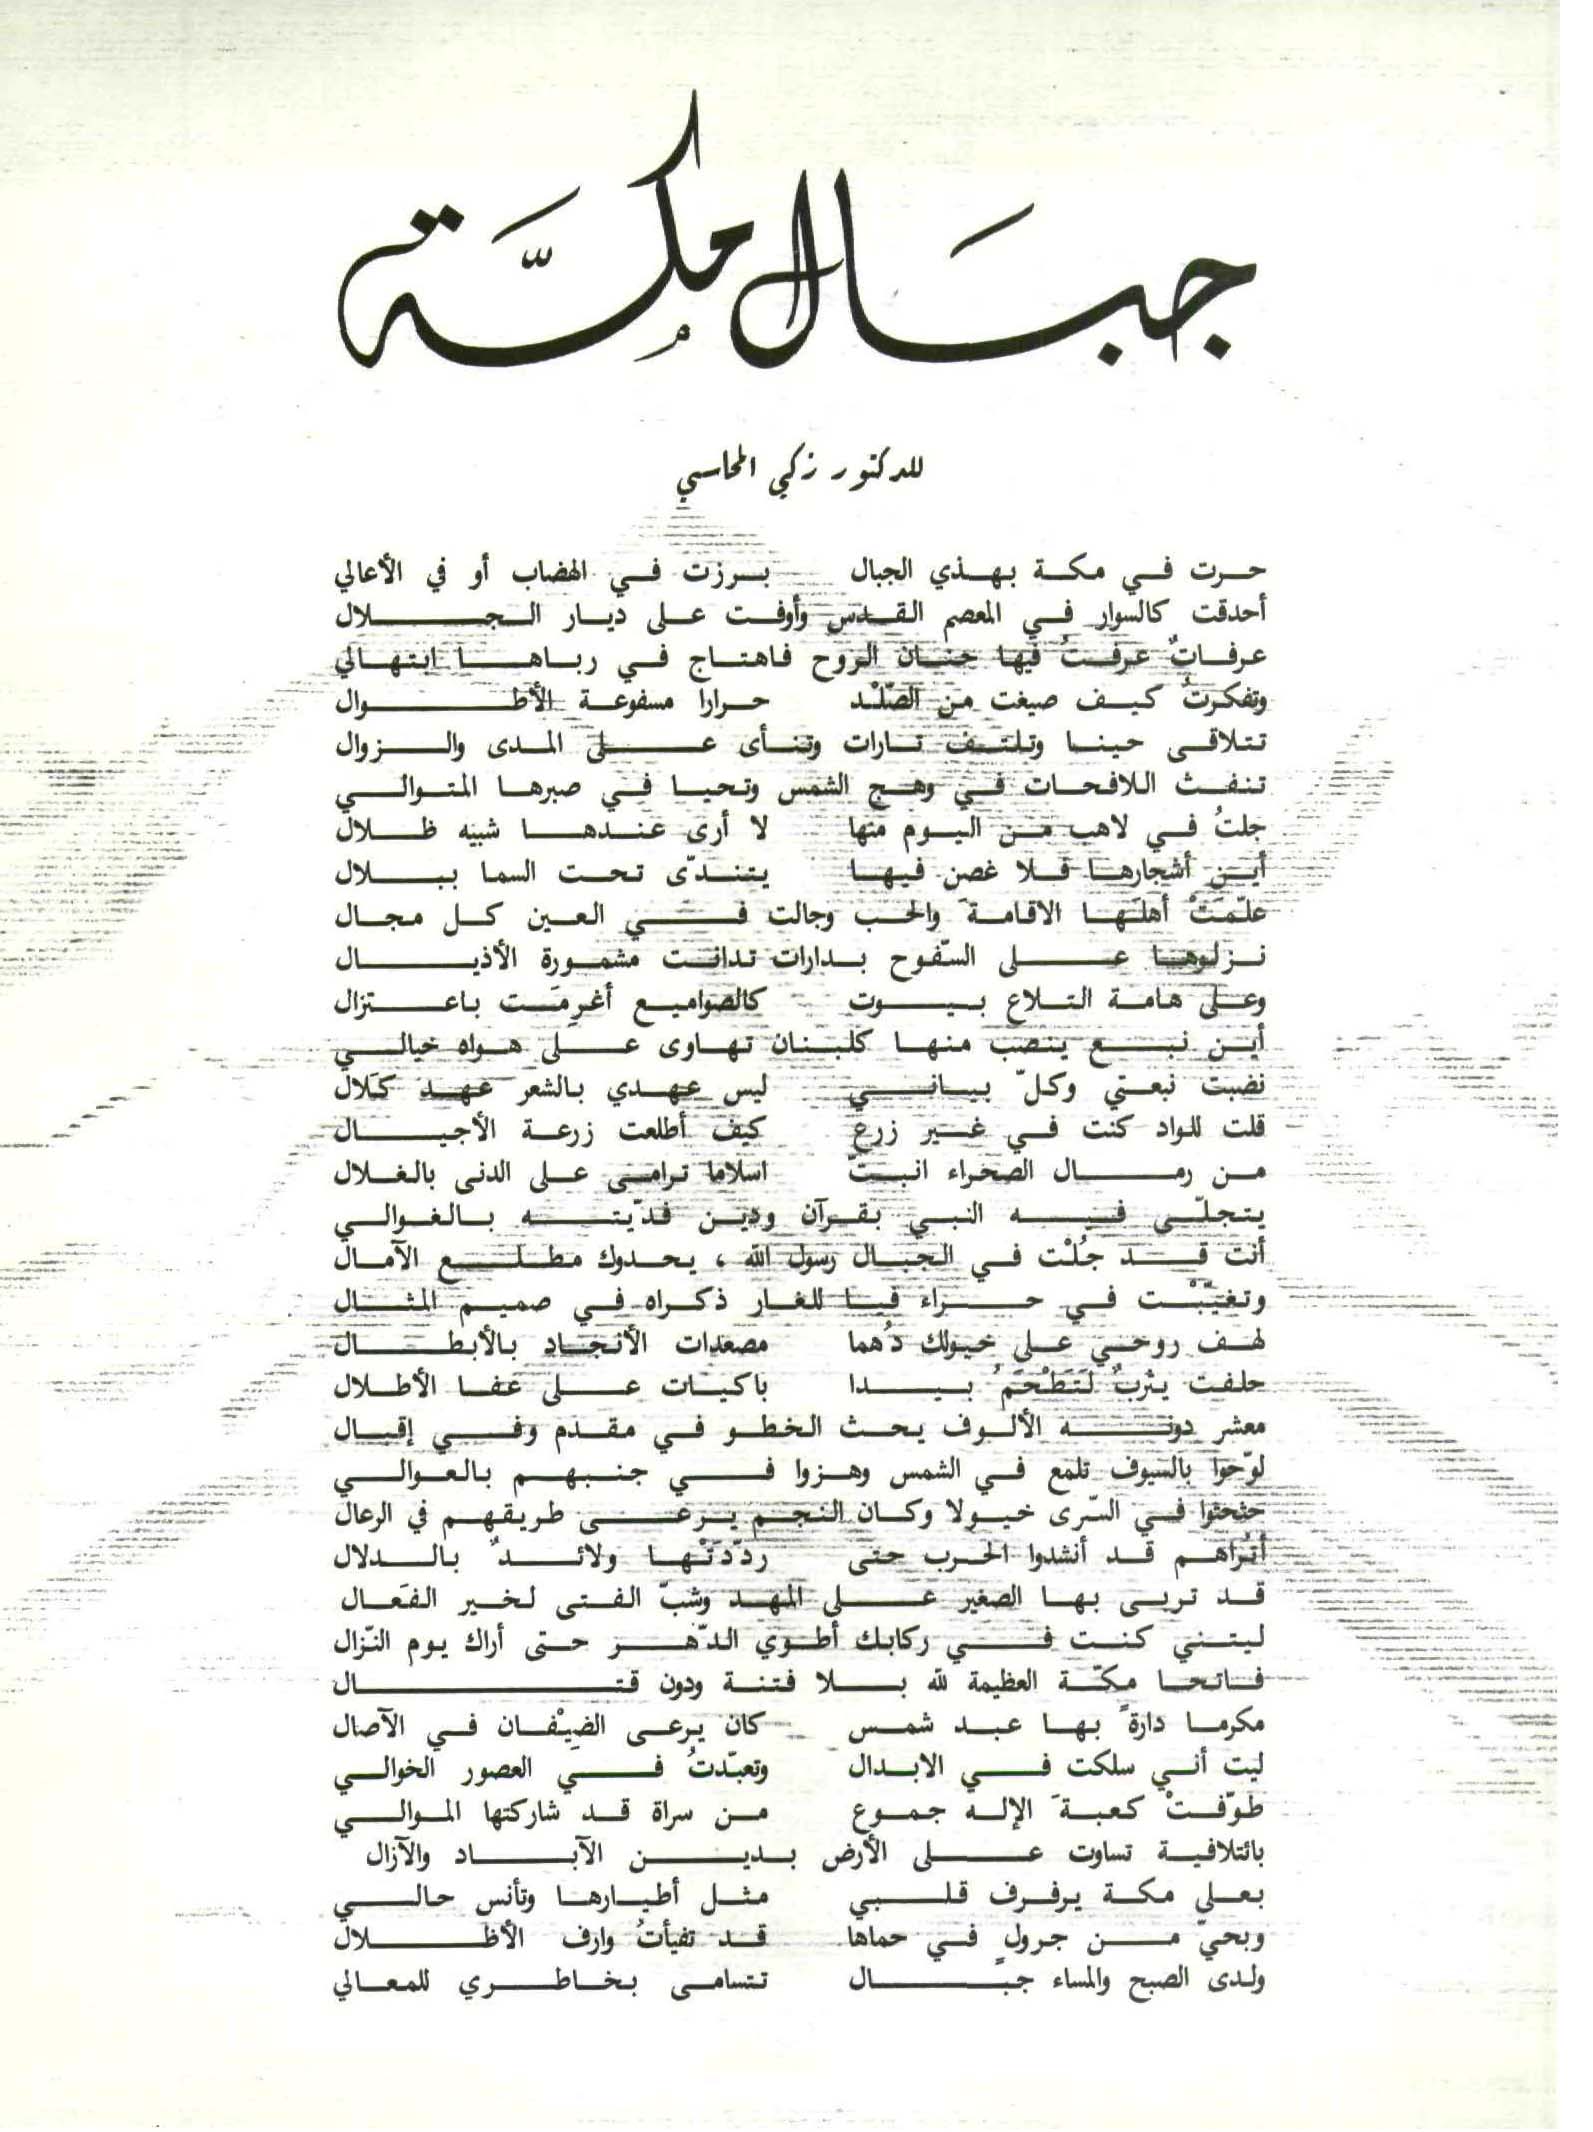 جبال مكّة
للدكتور زكي المحاسني
حرت في مكة بهذي الجبال برزت في الهضاب أو في الأعالي
أحدقت كالسوار في المعصم القدس وأوفت على ديار الجلال
عرفاتٌ عرفتُ فيها حنان الروح فاهتاج في رباها ابتهالي
وتفكرتُ كيف صيغت من الصّلْد حرارا مسفوعة الأطوال
تتلاقى حينا وتلتف تارات وتنأى على المدى والزوال
تنفث اللافحات في وهج الشمس وتحيا في صبرها المتوالي
جلتُ في لاهب من اليوم منها لا أرى عندها شبيه ظلال
أين أشجارها فلا غصن فيها يتندّى تحت السما ببلال
علّمَتْ أهلَها الاقامةَ والحب وجالت في العين كل مجال
نزلوها على السّفوح بدارات تدانت مشمورة الأذيال
وعلى هامة التلاع بيوت كالصواميع أغرِمَت باعتزال
أين نبع ينصب منها كلبنان تهاوى على هواه خيالي
نضبت نبعتي وكلّ بياني ليس عهدي بالشعر عهد كَلال
قلت للواد كنت في غير زرع كيف أطلعت زرعة الأجيال
من رمال الصحراء انبتّ اسلاما ترامى على الدنى بالغلال
يتجلّى فيه النبي بقرآن ودين فدّيته بالغوالي
أنت قد جُلْت في الجبال رسول الله ، يحدوك مطلع الآمال
وتغيّبْت في حراء فيا للغار ذكراه في صميم المثال
لهف روحي على خيولك دُهما مصعدات الأنجاد بالأبطال
حلفت يثربٌ لَتَطْحَمُ بيدا باكيات على عفا الأطلال
معشر دونه الألوف يحث الخطو في مقدم وفي إقبال
لوّحوا بالسيوف تلمع في الشمس وهزوا في جنبهم بالعوالي
حثحثوا في السّرى خيولا وكان النجم يرعى طريقهم في الرعال
أتُراهم قد أنشدوا الحرب حتى ردّدَتْها ولائدٌ بالدلال
قد تربى بها الصغير على المهد وشبّ الفتى لخير الفَعال
ليتني كنت في ركابك أطوي الدّهر حتى أراك يوم النّزال
فاتحا مكّة العظيمة لله بلا فتنة ودون قتال
مكرما دارةً بها عبد شمس كان يرعى الضِيْفان في الآصال
ليت أني سلكت في الابدال وتعبّدتُ في العصور الخوالي
طوّفتْ كعبةَ الإله جموع من سراة قد شاركتها الموالي
بائتلافية تساوت على الأرض بدين الآباد والآزال
بعلى مكة يرفرف قلبي مثل أطيارها وتأنس حالي
وبحيّ من جرولٍ في حماها قد تفيأتُ وارف الأظلال
ولدى الصبح والمساء جبال تتسامى بخاطري للمعالي